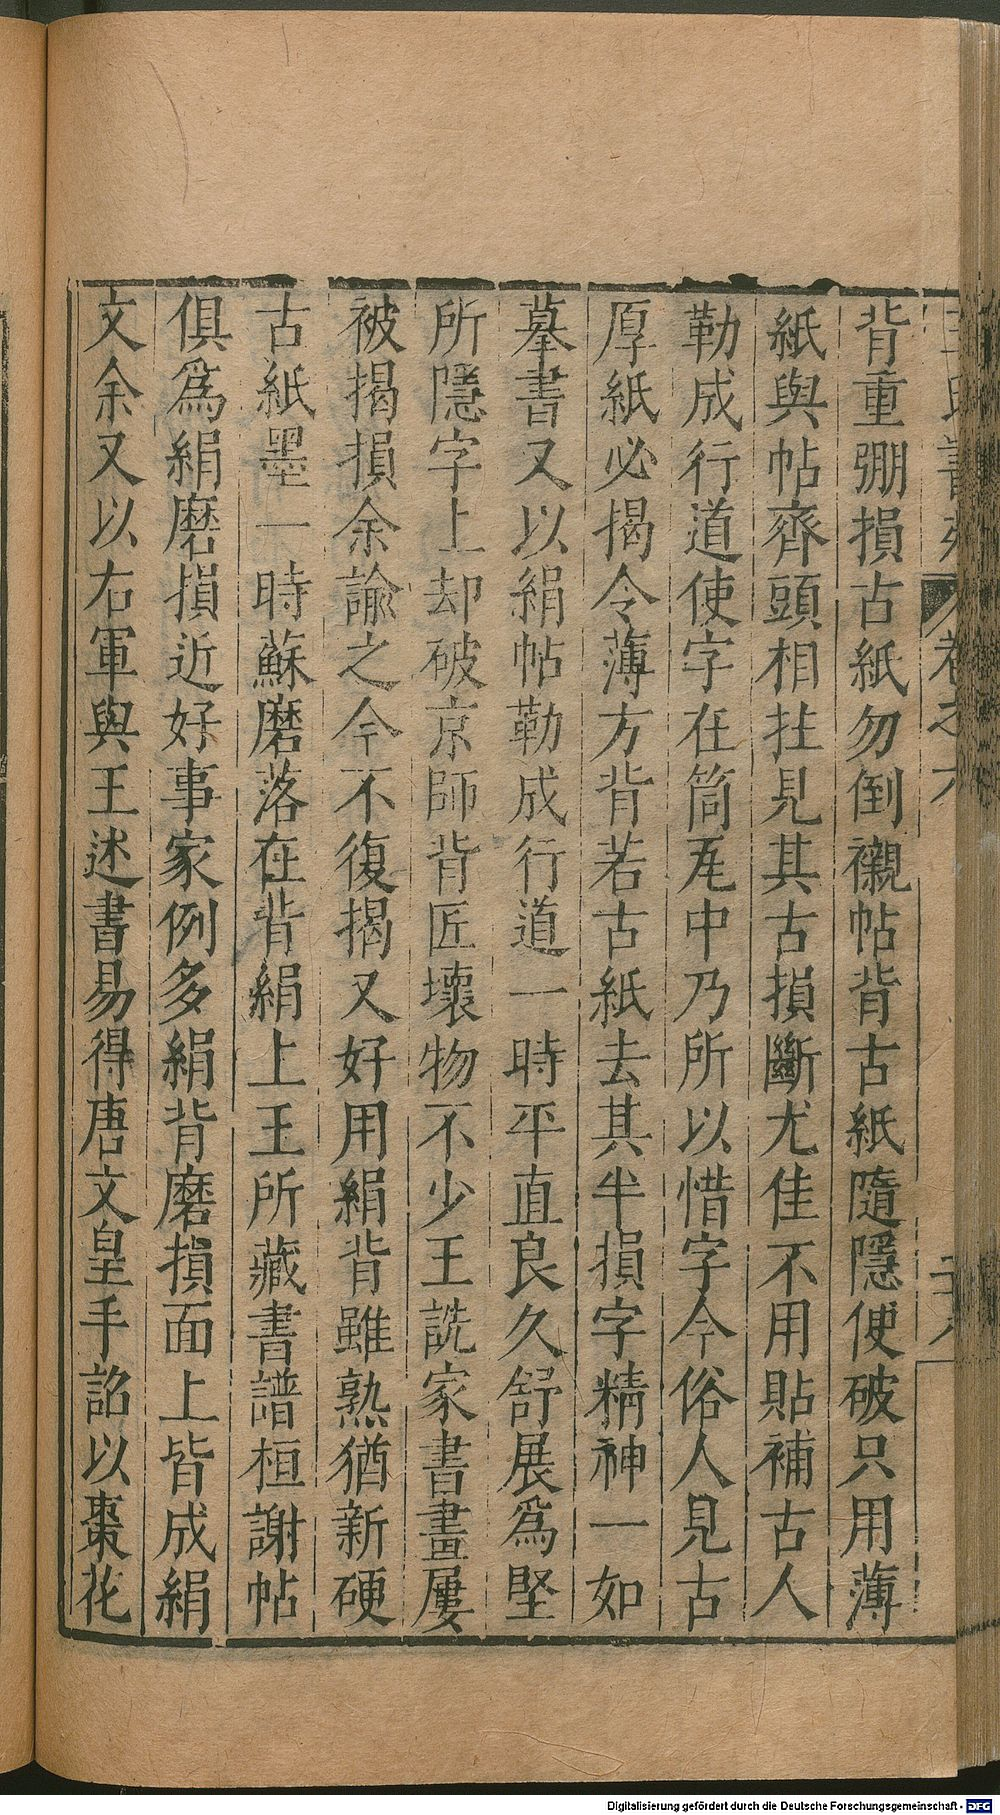 背重弸損古紙勿倒襯帖背古紙隨隱便破只用薄
紙與帖齊頭相拄見其古損斷尤佳不用貼補古人
勒成行道使字在筒瓦中乃所以惜字今俗人見古
厚紙必揭令薄方背若古紙去其半損字精神一如
摹書又以絹帖勒成行道一時平直良久舒展爲堅
所隱字上却破京師背匠壞物不少王詵家書畫屢
被揭損余諭之今不復揭又好用絹背雖熟猶新硬
古紙墨一時蘇磨落在背絹上王所藏書譜桓謝帖
俱爲絹磨損近好事家例多絹背磨損面上皆成絹
文余又以右軍與王述書易得唐文皇手詔以棗花
卷之六
Digitalisierung gefördert durch die Deutsche Forschungsgemeinschaft - DFG